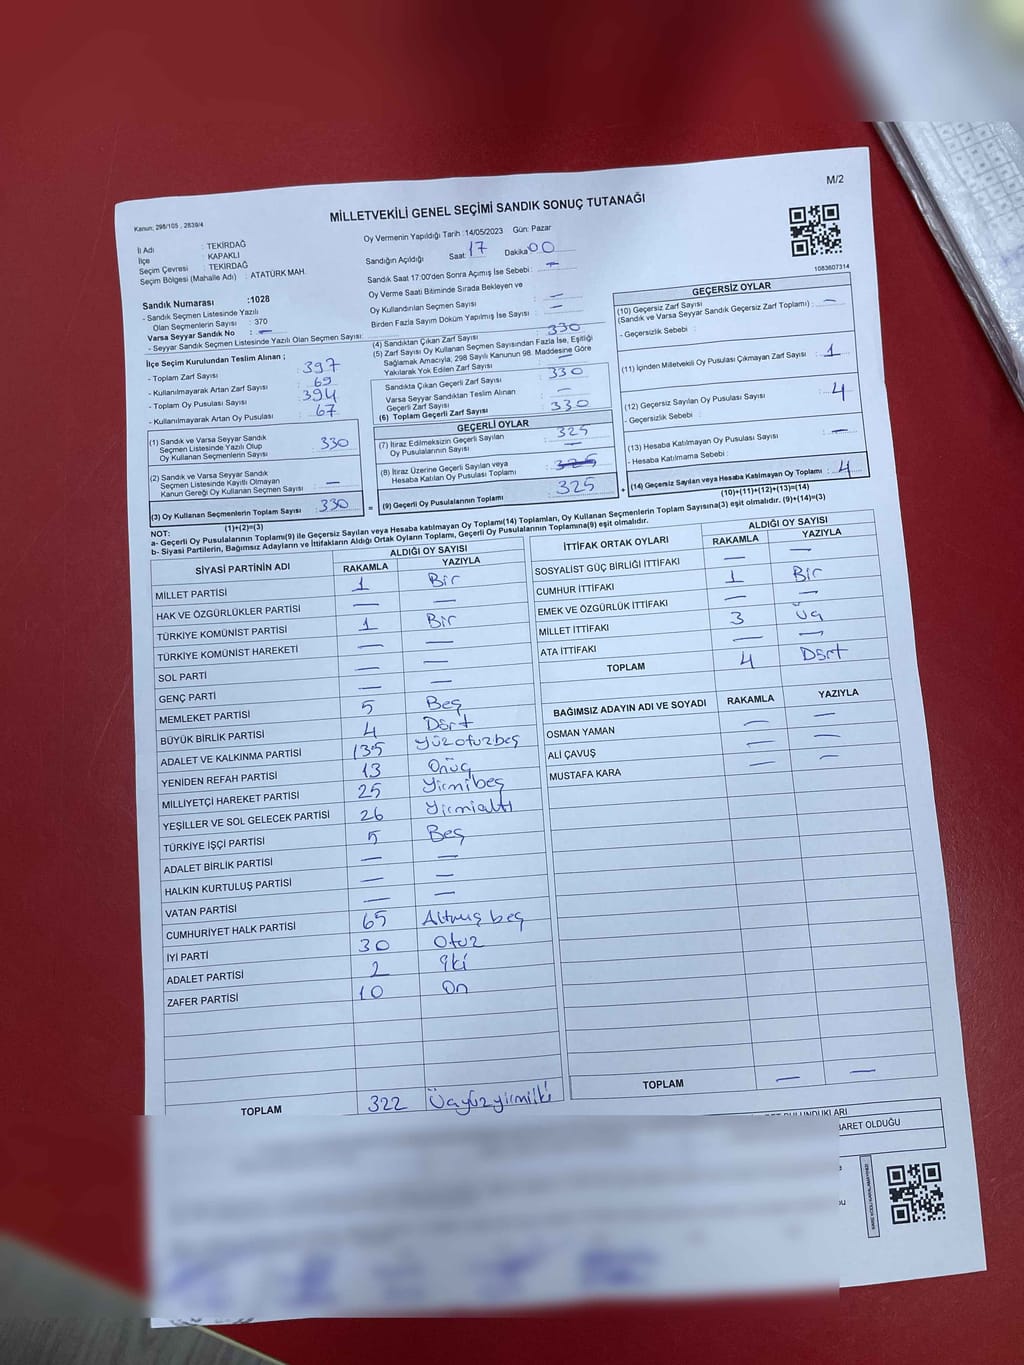 M/2
MİLLETVEKİLİ GENEL SEÇİMİ SANDIK SONUÇ TUTANAĞI
Kanun: 298/105 , 2839/4
İl Adı : TEKİRDAĞ
İlçe : KAPAKLI
Seçim Çevresi : TEKİRDAĞ
Seçim Bölgesi (Mahalle Adı) : ATATÜRK MAH.
Sandık Numarası :1028
- Sandık Seçmen Listesinde Yazılı
Olan Seçmenlerin Sayısı : 370
Varsa Seyyar Sandık No : —
- Seyyar Sandık Seçmen Listesinde Yazılı Olan Seçmen Sayısı :
Oy Vermenin Yapıldığı Tarih :14/05/2023 Gün: Pazar
Sandığın Açıldığı Saat: 17 Dakika: 00
Sandık Saat 17:00'den Sonra Açımış İse Sebebi : —
Oy Verme Saati Bitiminde Sırada Bekleyen ve
Oy Kullandırılan Seçmen Sayısı : —
Birden Fazla Sayım Döküm Yapılmış İse Sayısı : —
1083607314
İlçe Seçim Kurulundan Teslim Alınan ;
- Toplam Zarf Sayısı : 397
- Kullanılmayarak Artan Zarf Sayısı : 69
- Toplam Oy Pusulası Sayısı : 394
- Kullanılmayarak Artan Oy Pusulası : 67
(1) Sandık ve Varsa Seyyar Sandık
Seçmen Listesinde Yazılı Olup
Oy Kullanan Seçmenlerin Sayısı : 330
(2) Sandık ve Varsa Seyyar Sandık
Seçmen Listesinde Kayıtlı Olmayan
Kanun Gereği Oy Kullanan Seçmen Sayısı : —
(3) Oy Kullanan Seçmenlerin Toplam Sayısı : 330
(1)+(2)=(3)
(4) Sandıktan Çıkan Zarf Sayısı : 330
(5) Zarf Sayısı Oy Kullanan Seçmen Sayısından Fazla İse, Eşitliği
Sağlamak Amacıyla; 298 Sayılı Kanunun 98. Maddesine Göre
Yakılarak Yok Edilen Zarf Sayısı : —
Sandıkta Çıkan Geçerli Zarf Sayısı : 330
Varsa Seyyar Sandıktan Teslim Alınan
Geçerli Zarf Sayısı : —
(6) Toplam Geçerli Zarf Sayısı : 330
GEÇERLİ OYLAR
(7) İtiraz Edilmeksizin Geçerli Sayılan
Oy Pusulalarının Sayısı : 325
(8) İtiraz Üzerine Geçerli Sayılan veya
Hesaba Katılan Oy Pusulası Toplamı : 325 —
= (9) Geçerli Oy Pusulalarının Toplamı : 325
GEÇERSİZ OYLAR
(10) Geçersiz Zarf Sayısı : —
(Sandık ve Varsa Seyyar Sandık Geçersiz Zarf Toplamı)
- Geçersizlik Sebebi :
(11) İçinden Milletvekili Oy Pusulası Çıkmayan Zarf Sayısı : 1
(12) Geçersiz Sayılan Oy Pusulası Sayısı : 4
- Geçersizlik Sebebi :
(13) Hesaba Katılmayan Oy Pusulası Sayısı : —
- Hesaba Katılmama Sebebi :
+ (14) Geçersiz Sayılan veya Hesaba Katılmayan Oy Toplamı : 4
(10)+(11)+(12)+(13)=(14)
NOT:
a- Geçerli Oy Pusulalarının Toplamı(9) ile Geçersiz Sayılan veya Hesaba katılmayan Oy Toplamı(14) Toplamları, Oy Kullanan Seçmenlerin Toplam Sayısına(3) eşit olmalıdır. (9)+(14)=(3)
b- Siyasi Partilerin, Bağımsız Adayların ve İttifakların Aldığı Ortak Oyların Toplamı, Geçerli Oy Pusulalarının Toplamına(9) eşit olmalıdır.
SİYASİ PARTİNİN ADI ALDIĞI OY SAYISI
RAKAMLA YAZIYLA
MİLLET PARTİSİ 1 Bir
HAK VE ÖZGÜRLÜKLER PARTİSİ — —
TÜRKİYE KOMÜNİST PARTİSİ 1 Bir
TÜRKİYE KOMÜNİST HAREKETİ — —
SOL PARTİ — —
GENÇ PARTİ — —
MEMLEKET PARTİSİ 5 Beş
BÜYÜK BİRLİK PARTİSİ 4 Dört
ADALET VE KALKINMA PARTİSİ 135 Yüzotuzbeş
YENİDEN REFAH PARTİSİ 13 Onüç
MİLLİYETÇİ HAREKET PARTİSİ 25 Yirmibeş
YEŞİLLER VE SOL GELECEK PARTİSİ 26 Yirmialtı
TÜRKİYE İŞÇİ PARTİSİ 5 Beş
ADALET BİRLİK PARTİSİ — —
HALKIN KURTULUŞ PARTİSİ — —
VATAN PARTİSİ — —
CUMHURİYET HALK PARTİSİ 65 Altmış beş
İYİ PARTİ 30 Otuz
ADALET PARTİSİ 2 iki
ZAFER PARTİSİ 10 On
TOPLAM 322 Üçyüzyirmiiki
İTTİFAK ORTAK OYLARI ALDIĞI OY SAYISI
RAKAMLA YAZIYLA
SOSYALİST GÜÇ BİRLİĞİ İTTİFAKI — —
CUMHUR İTTİFAKI 1 Bir
EMEK VE ÖZGÜRLÜK İTTİFAKI — —
MİLLET İTTİFAKI 3 Üç
ATA İTTİFAKI — —
TOPLAM 4 Dört
BAĞIMSIZ ADAYIN ADI VE SOYADI RAKAMLA YAZIYLA
OSMAN YAMAN — —
ALİ ÇAVUŞ — —
MUSTAFA KARA — —
TOPLAM — —
BULUNDUKLARI
BARET OLDUĞU